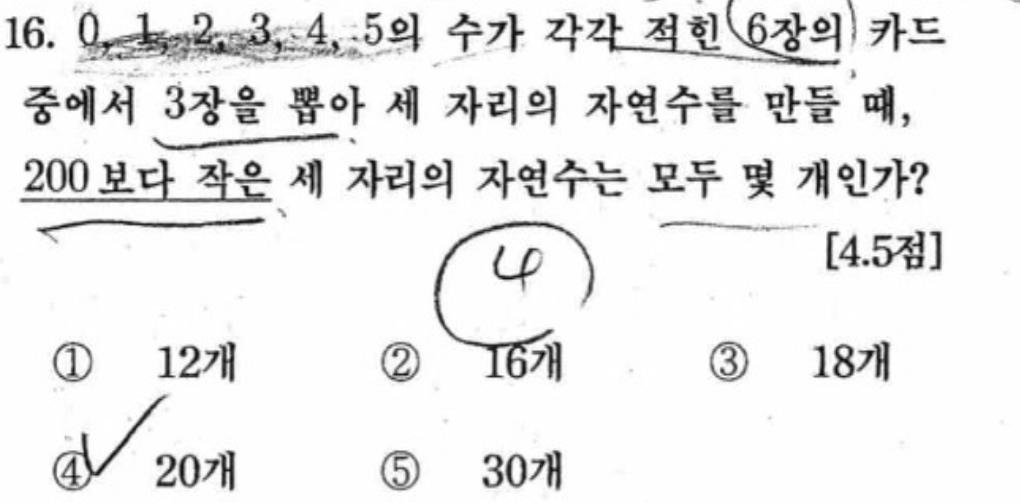 16. 0, 1, 2, 3, 4, 5의 수가 각각 적힌 6장의 카드
중에서 3장을 뽑아 세 자리의 자연수를 만들 때,
200보다 작은 세 자리의 자연수는 모두 몇 개인가?
[4.5점]
4
① 12개 ② 16개 ③ 18개
④ 20개 ⑤ 30개